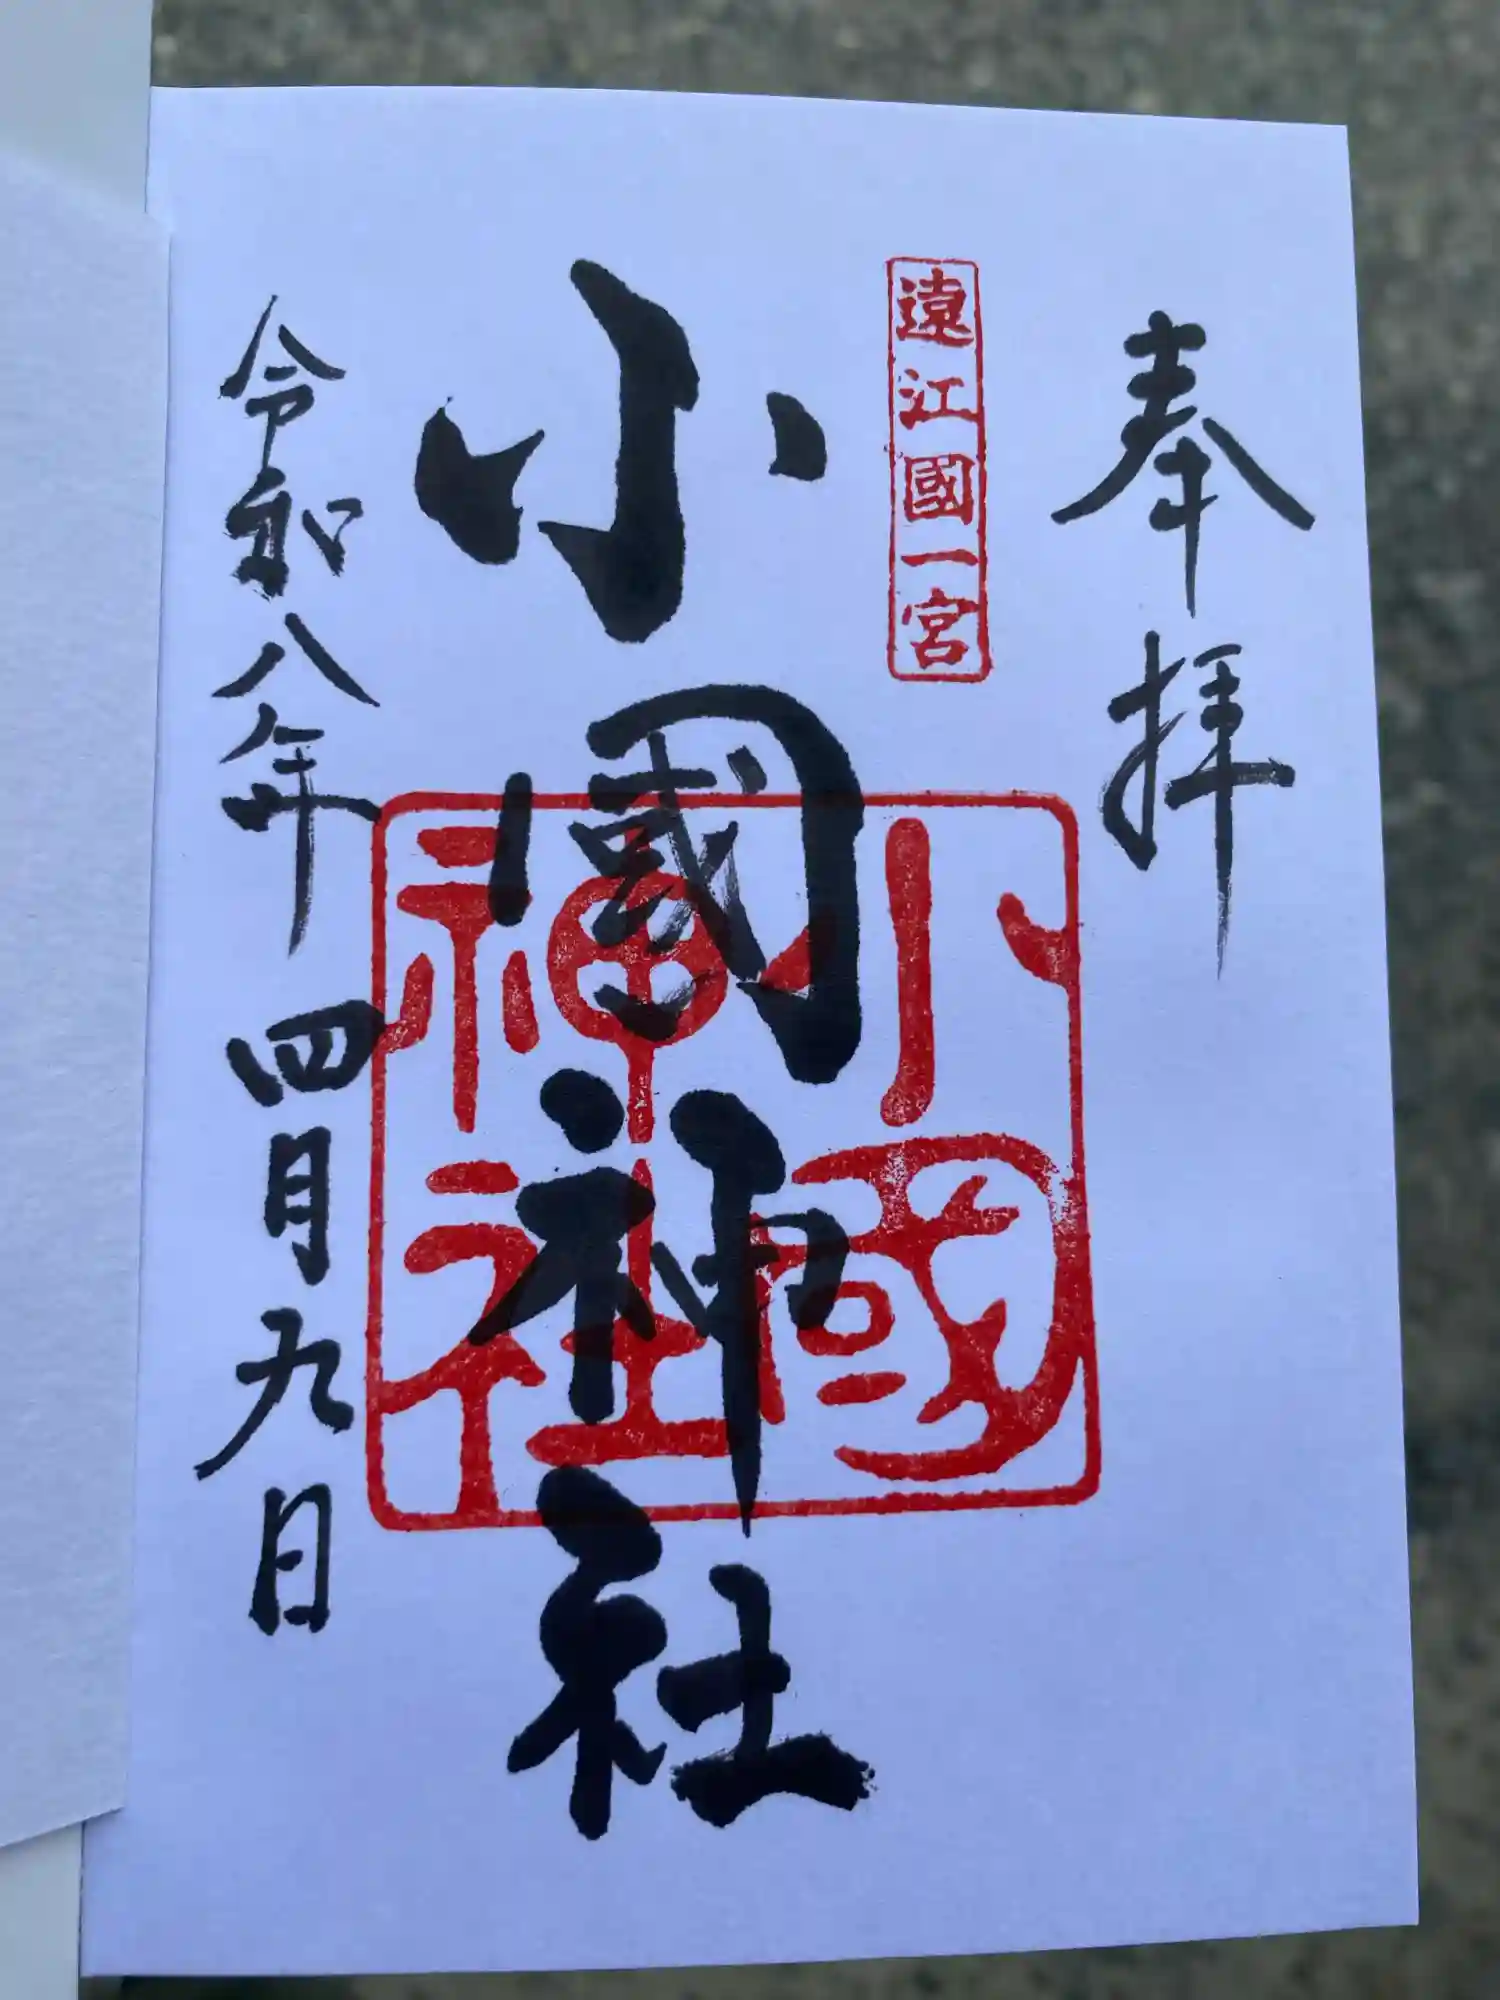 奉拝
遠江國一宮
小國神社
小國
神社
令和八年四月九日